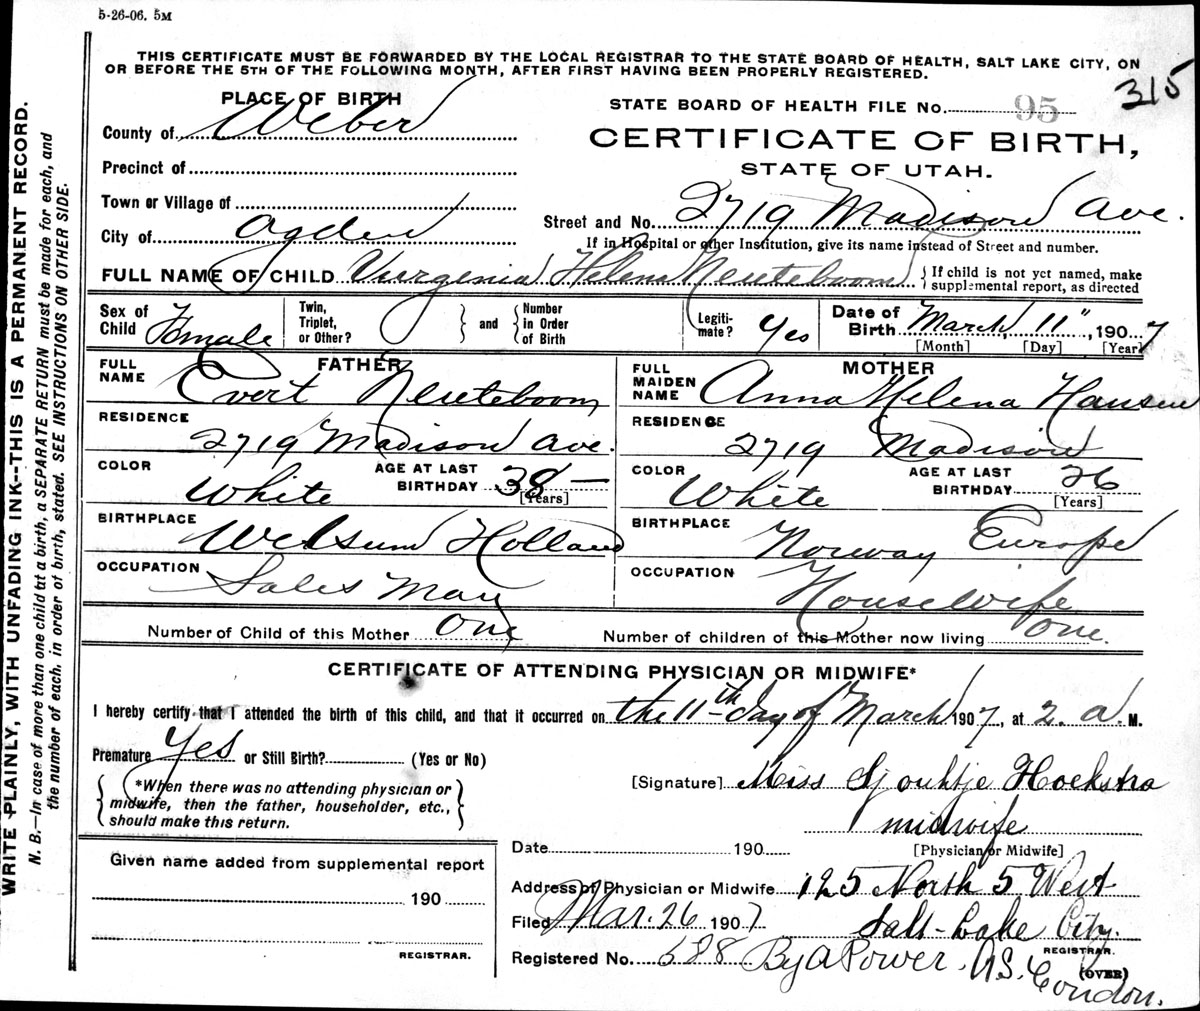 5-26-06. 5M
THIS CERTIFICATE MUST BE FORWARDED BY THE LOCAL REGISTRAR TO THE STATE BOARD OF HEALTH, SALT LAKE CITY, ON
OR BEFORE THE 5TH OF THE FOLLOWING MONTH, AFTER FIRST HAVING BEEN PROPERLY REGISTERED.
315
PLACE OF BIRTH
STATE BOARD OF HEALTH FILE No. 95
County of Weber
CERTIFICATE OF BIRTH,
STATE OF UTAH.
Precinct of
Town or Village of
Street and No. 2719 Madison Ave.
City of Ogden
If in Hospital or other Institution, give its name instead of Street and number.
FULL NAME OF CHILD Virginia Helena Neuteboom
} If child is not yet named, make
supplemental report, as directed
Sex of Child Female
Twin, Triplet, or Other? } and { Number in Order of Birth
Legiti-mate? Yes
Date of Birth March, 11", 1907
[Month] [Day] [Year]
FATHER
FULL NAME Evert Neuteboom
RESIDENCE
2719 Madison Ave.
COLOR White
AGE AT LAST BIRTHDAY 38 —
[Years]
BIRTHPLACE
Welsum Holland
OCCUPATION
Sales Man
MOTHER
FULL MAIDEN NAME Anna Helena Hansen
RESIDENCE
2719 Madison
COLOR White
AGE AT LAST BIRTHDAY 26
[Years]
BIRTHPLACE
Norway Europe
OCCUPATION
Housewife
Number of Child of this Mother One
Number of children of this Mother now living One.
CERTIFICATE OF ATTENDING PHYSICIAN OR MIDWIFE*
I hereby certify that I attended the birth of this child, and that it occurred on the 11th day of March 1907, at 2. a M.
Premature Yes or Still Birth? (Yes or No)
{ *When there was no attending physician or
midwife, then the father, householder, etc.,
should make this return. }
[Signature] Miss Sjouktje Hoekstra
midwife
[Physician or Midwife]
Date 190
Given name added from supplemental report
190
REGISTRAR.
Address of Physician or Midwife 125 North 5 West
Salt-Lake City.
Filed Mar. 26 1907
REGISTRAR.
Registered No. 688 By A Power. A.S. Condon.
(OVER)
WRITE PLAINLY, WITH UNFADING INK--THIS IS A PERMANENT RECORD.
N. B.—In case of more than one child at a birth, a SEPARATE RETURN must be made for each, and
the number of each, in order of birth, stated. SEE INSTRUCTIONS ON OTHER SIDE.